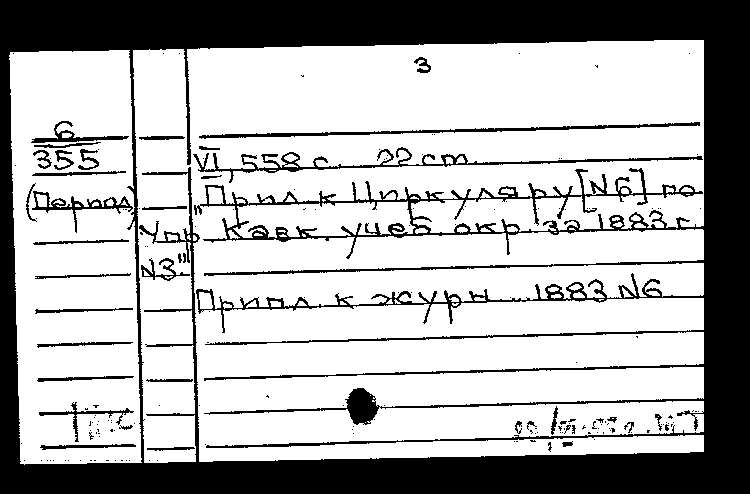 3
6
355 VI, 558 с. 22 cm.
(Период) "Прил. к Циркуляру [N6] по
Упр. Кавк. учеб. окр. за 1883 г.
N3"
Прил. к журн. ... 1883 N6.